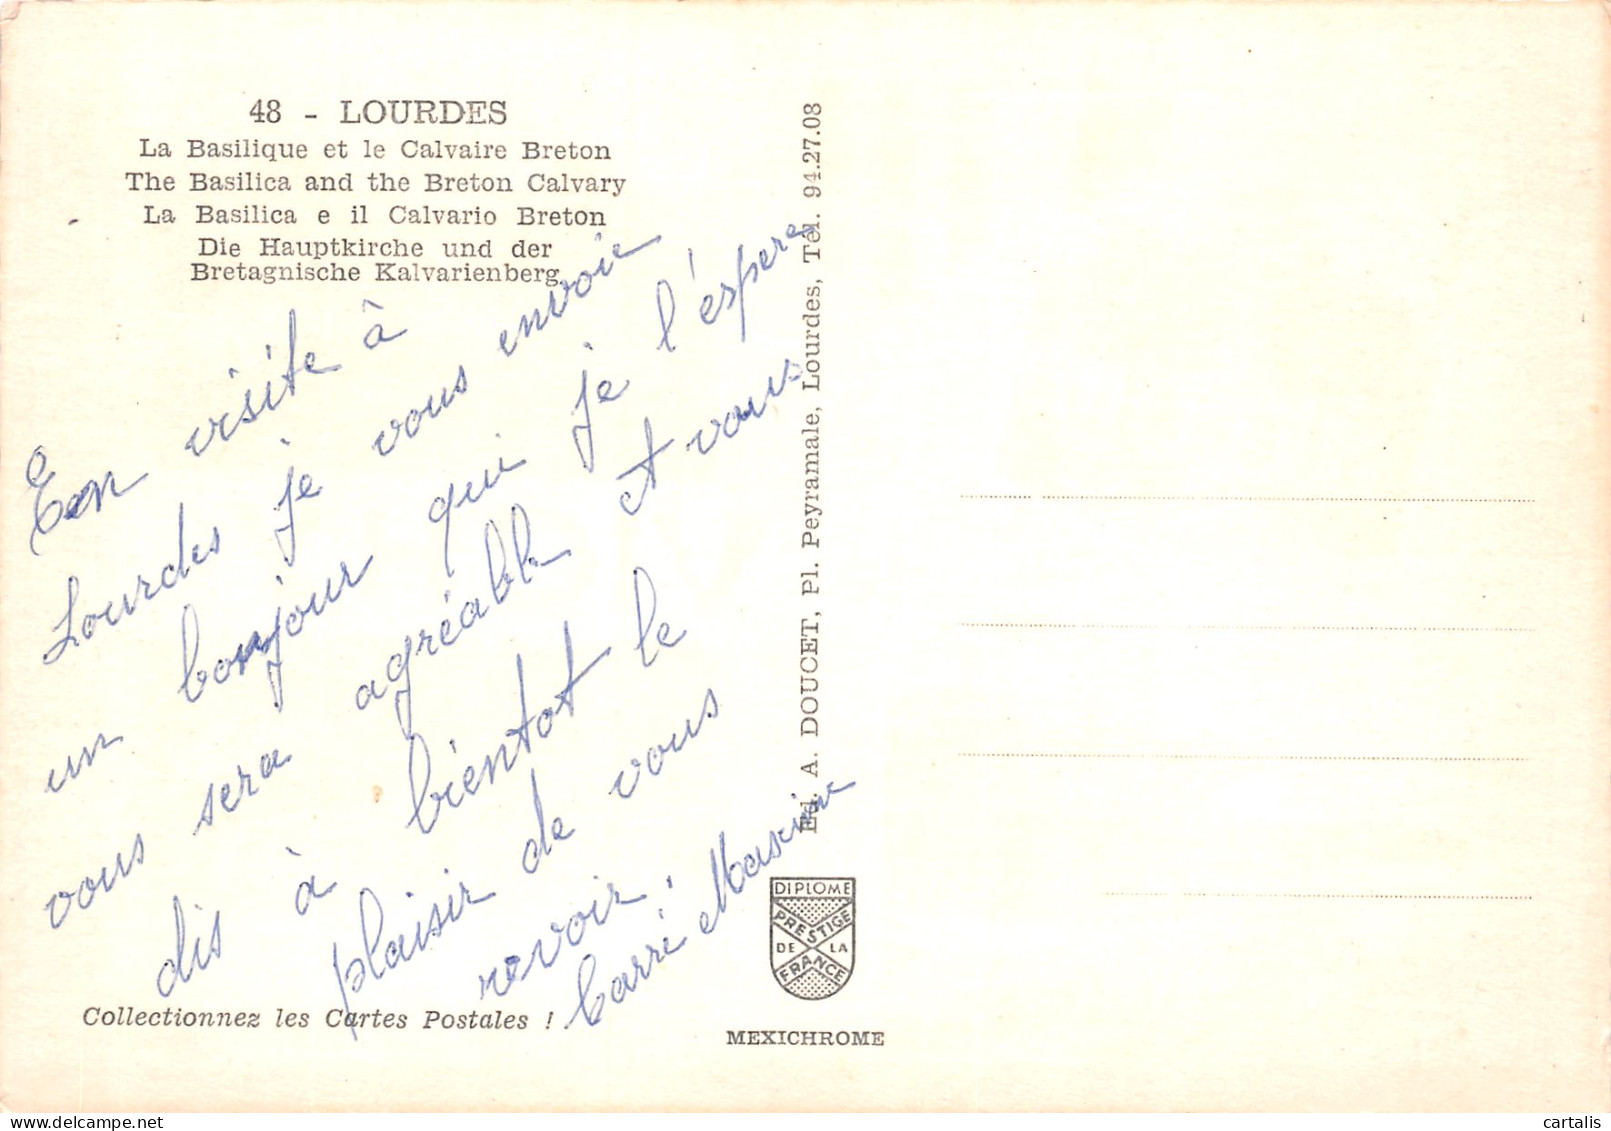 48 - LOURDES
La Basilique et le Calvaire Breton
The Basilica and the Breton Calvary
La Basilica e il Calvario Breton
Die Hauptkirche und der
Bretagnische Kalvarienberg.
En visite à
Lourdes je vous envoie
un bonjour qui je l'espere
vous sera agréable et vous
dis à bientot le
plaisir de vous
revoir.
Carré Maxime
Collectionnez les Cartes Postales !
Ed. A. DOUCET, Pl. Peyramale, Lourdes, Tél. 94.27.08
DIPLOME
PRESTIGE
DE LA
FRANCE
MEXICHROME
cartalis